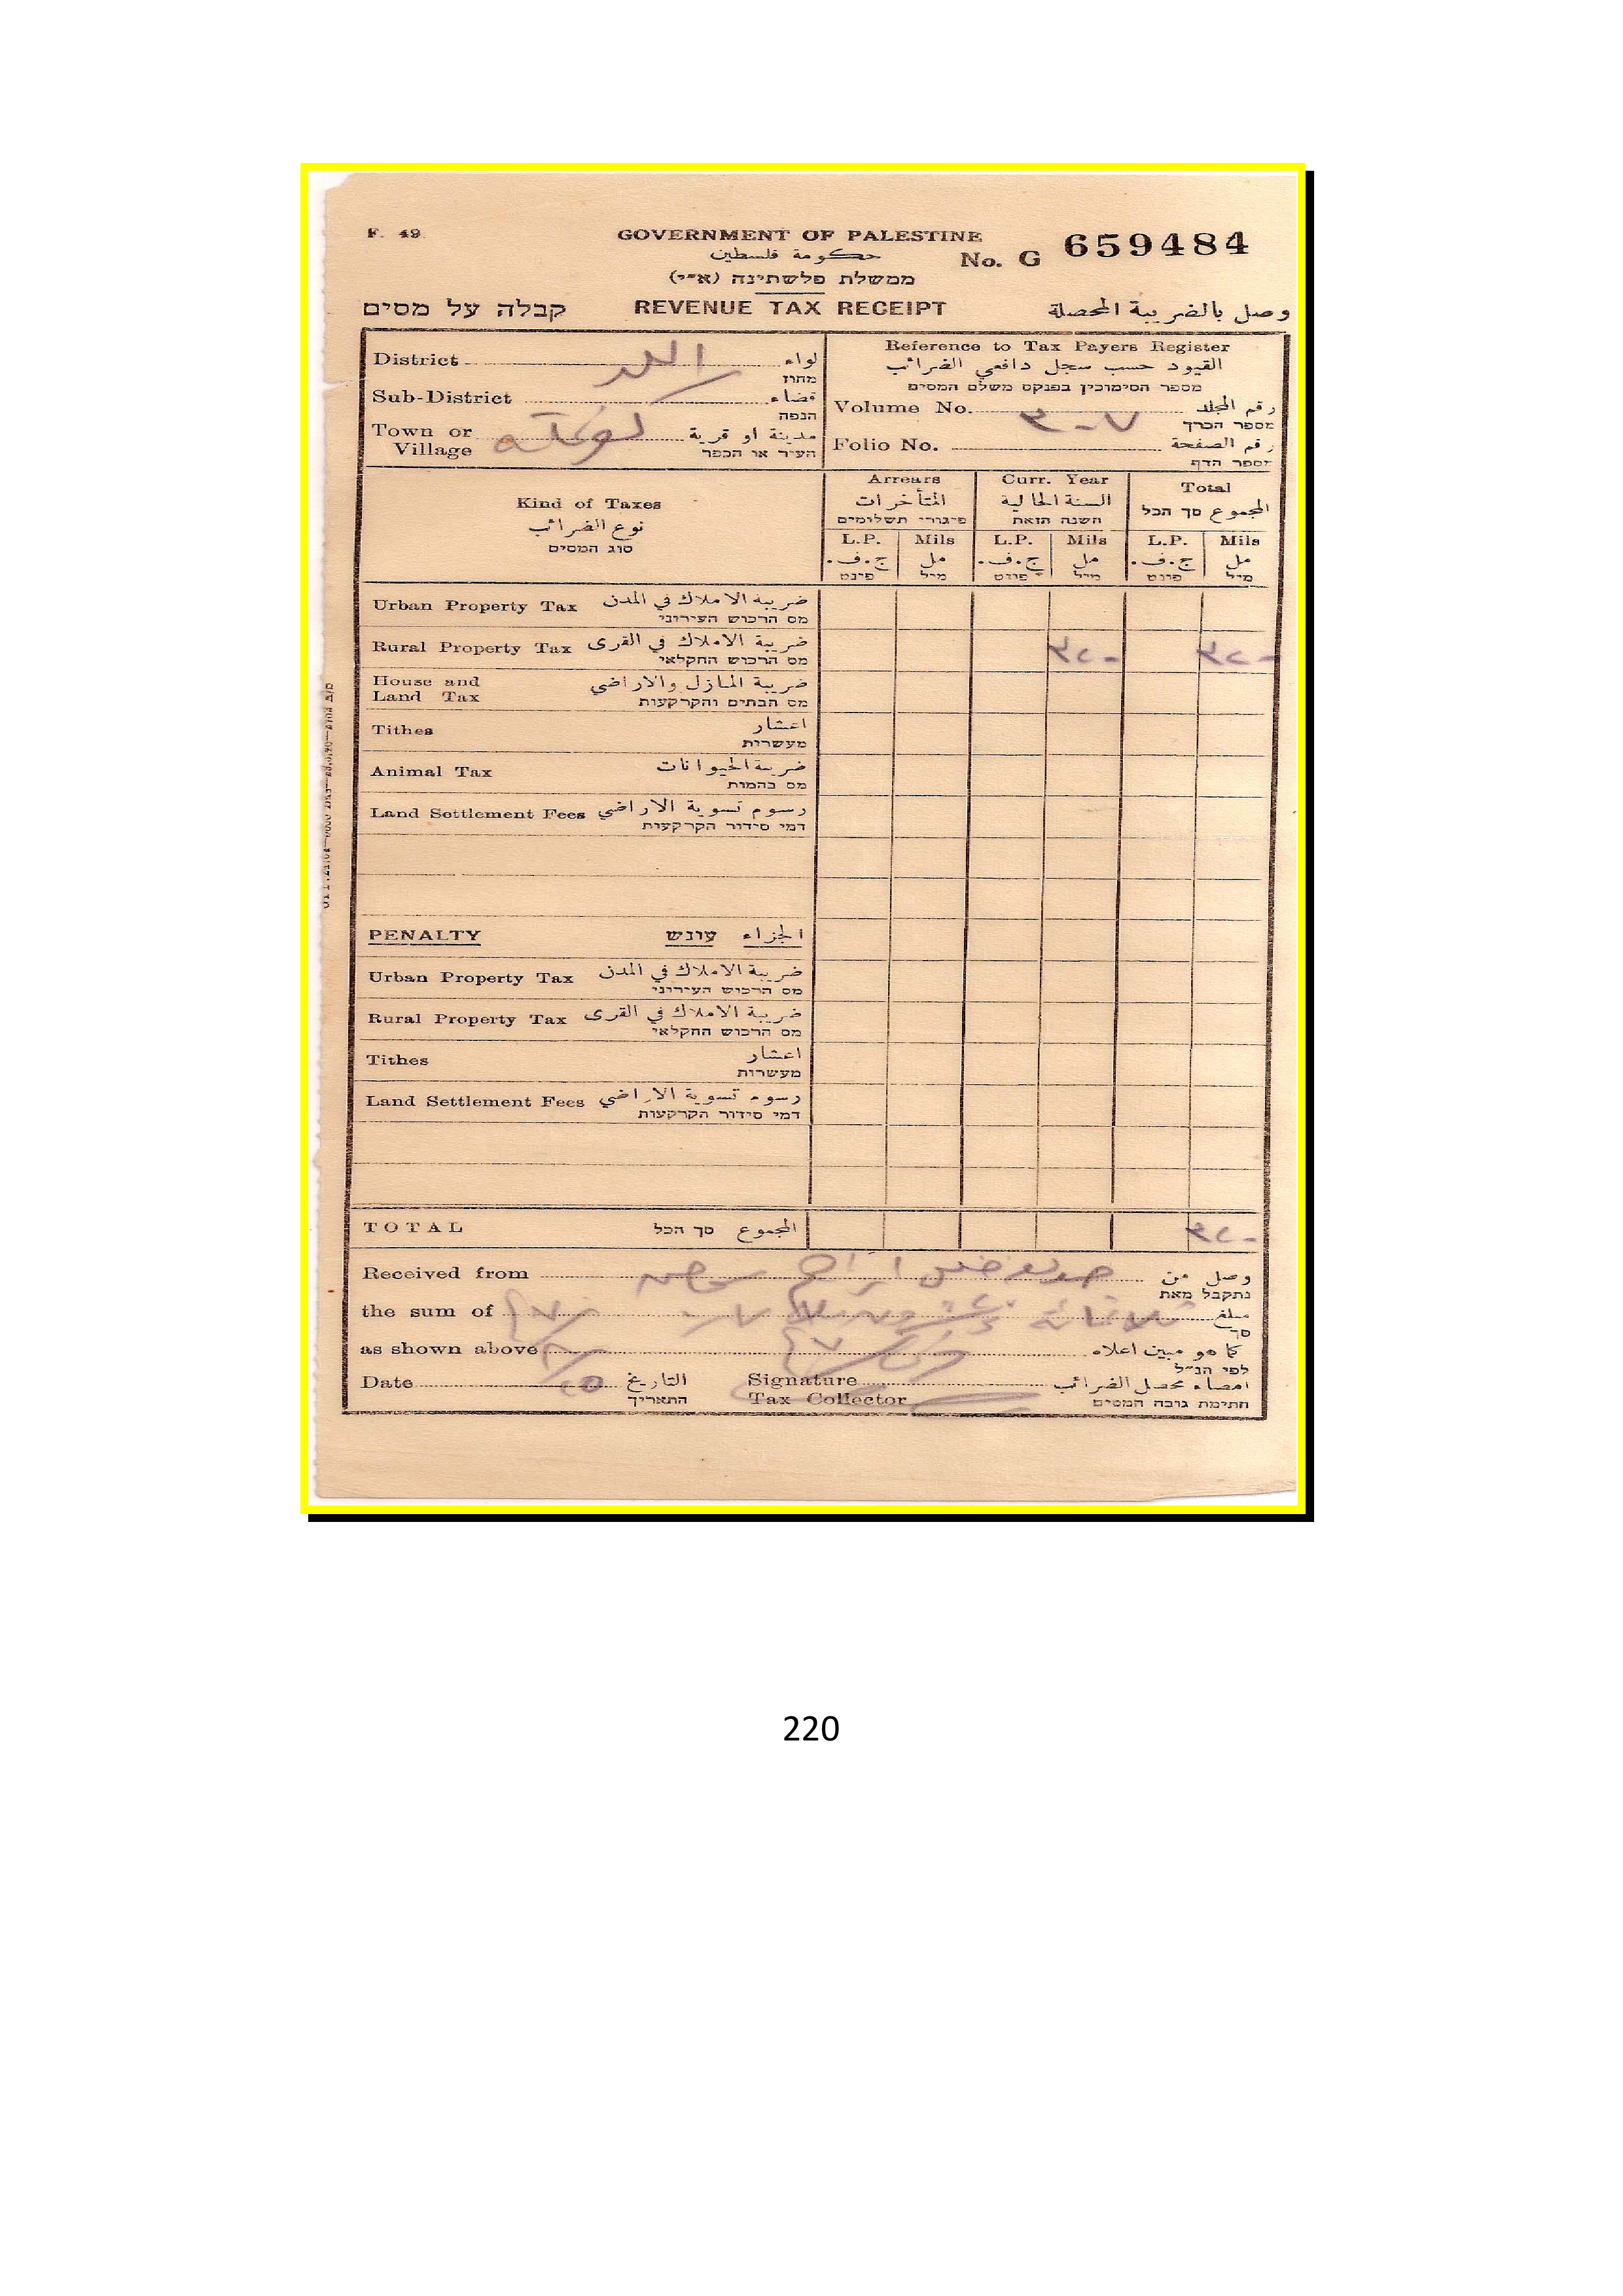 F. 49
GOVERNMENT OF PALESTINE
حكومة فلسطين
No. G 659484
ממשלת פלשתינה (א״י)
קבלה על מסים REVENUE TAX RECEIPT وصل بالضريبة المحصلة
District اللد لواء
מחוז
Sub-District قضاء
הנפה
Town or Village مدينة او قرية
העיר או הכפר
Reference to Tax Payers Register
القيود حسب سجل دافعي الضرائب
מספר הסימוכין בפנקס משלם המסים
Volume No. ٣٠٧ رقم المجلد
מספר הכרך
Folio No. رقم الصفحة
מספר הדף
Kind of Taxes
نوع الضرائب
סוג המסים
Arrears
المتأخرات
פיגורי תשלומים
Curr. Year
السنة الحالية
השנה הזאת
Total
المجموع סך הכל
L.P. Mils L.P. Mils L.P. Mils
ج.ف. مل ج.ف. مل ج.ف. مل
פונט מיל פונט מיל פונט מיל
Urban Property Tax ضريبة الاملاك في المدن
מס הרכוש העירוני
Rural Property Tax ضريبة الاملاك في القرى ٣٢٠ ٣٢٠
מס הרכוש החקלאי
House and Land Tax ضريبة المنازل والاراضي
מס הבתים והקרקעות
Tithes اعشار
מעשרות
Animal Tax ضريبة الحيوانات
מס בהמות
Land Settlement Fees رسوم تسوية الاراضي
דמי סידור הקרקעות
PENALTY עונש الجزاء
Urban Property Tax ضريبة الاملاك في المدن
מס הרכוש העירוני
Rural Property Tax ضريبة الاملاك في القرى
מס הרכוש החקלאי
Tithes اعشار
מעשרות
Land Settlement Fees رسوم تسوية الاراضي
דמי סידור הקרקעות
TOTAL סך הכל المجموع ٣٢٠
Received from وصل من
נתקבל מאת
the sum of ثلاثماية مبلغ
סך
as shown above كما هو مبين اعلاه
לפי הנ״ל
Date التاريخ Signature امضاء محصل الضرائب
התאריך Tax Collector חתימת גובה המסים
220